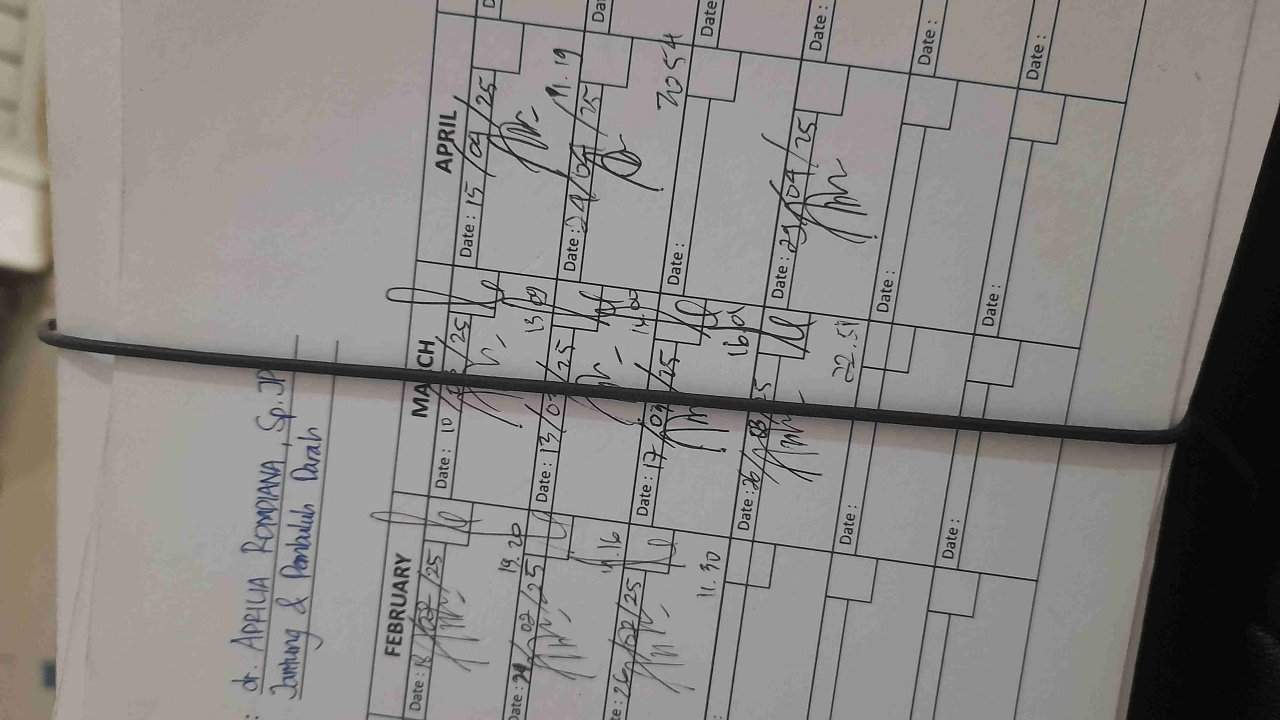 : dr. APRILIA ROMDIANA, Sp.JP
Jantung & Pembuluh Darah
FEBRUARY
MARCH
APRIL
Date : 18/02/25
Date : 10/03/25
Date : 15/04/25
19.20
13.09
19.19
Date : 24/02/25
Date : 13/03/25
Date : 24/04/25
19.16
14.02
2054
Date : 26/02/25
Date : 17/03/25
Date :
11.30
16.01
Date : 26/03/25
Date : 29/04/25
22.51
Date :
Date :
Date :
Date :
Date :
Date :
Date :
Date :